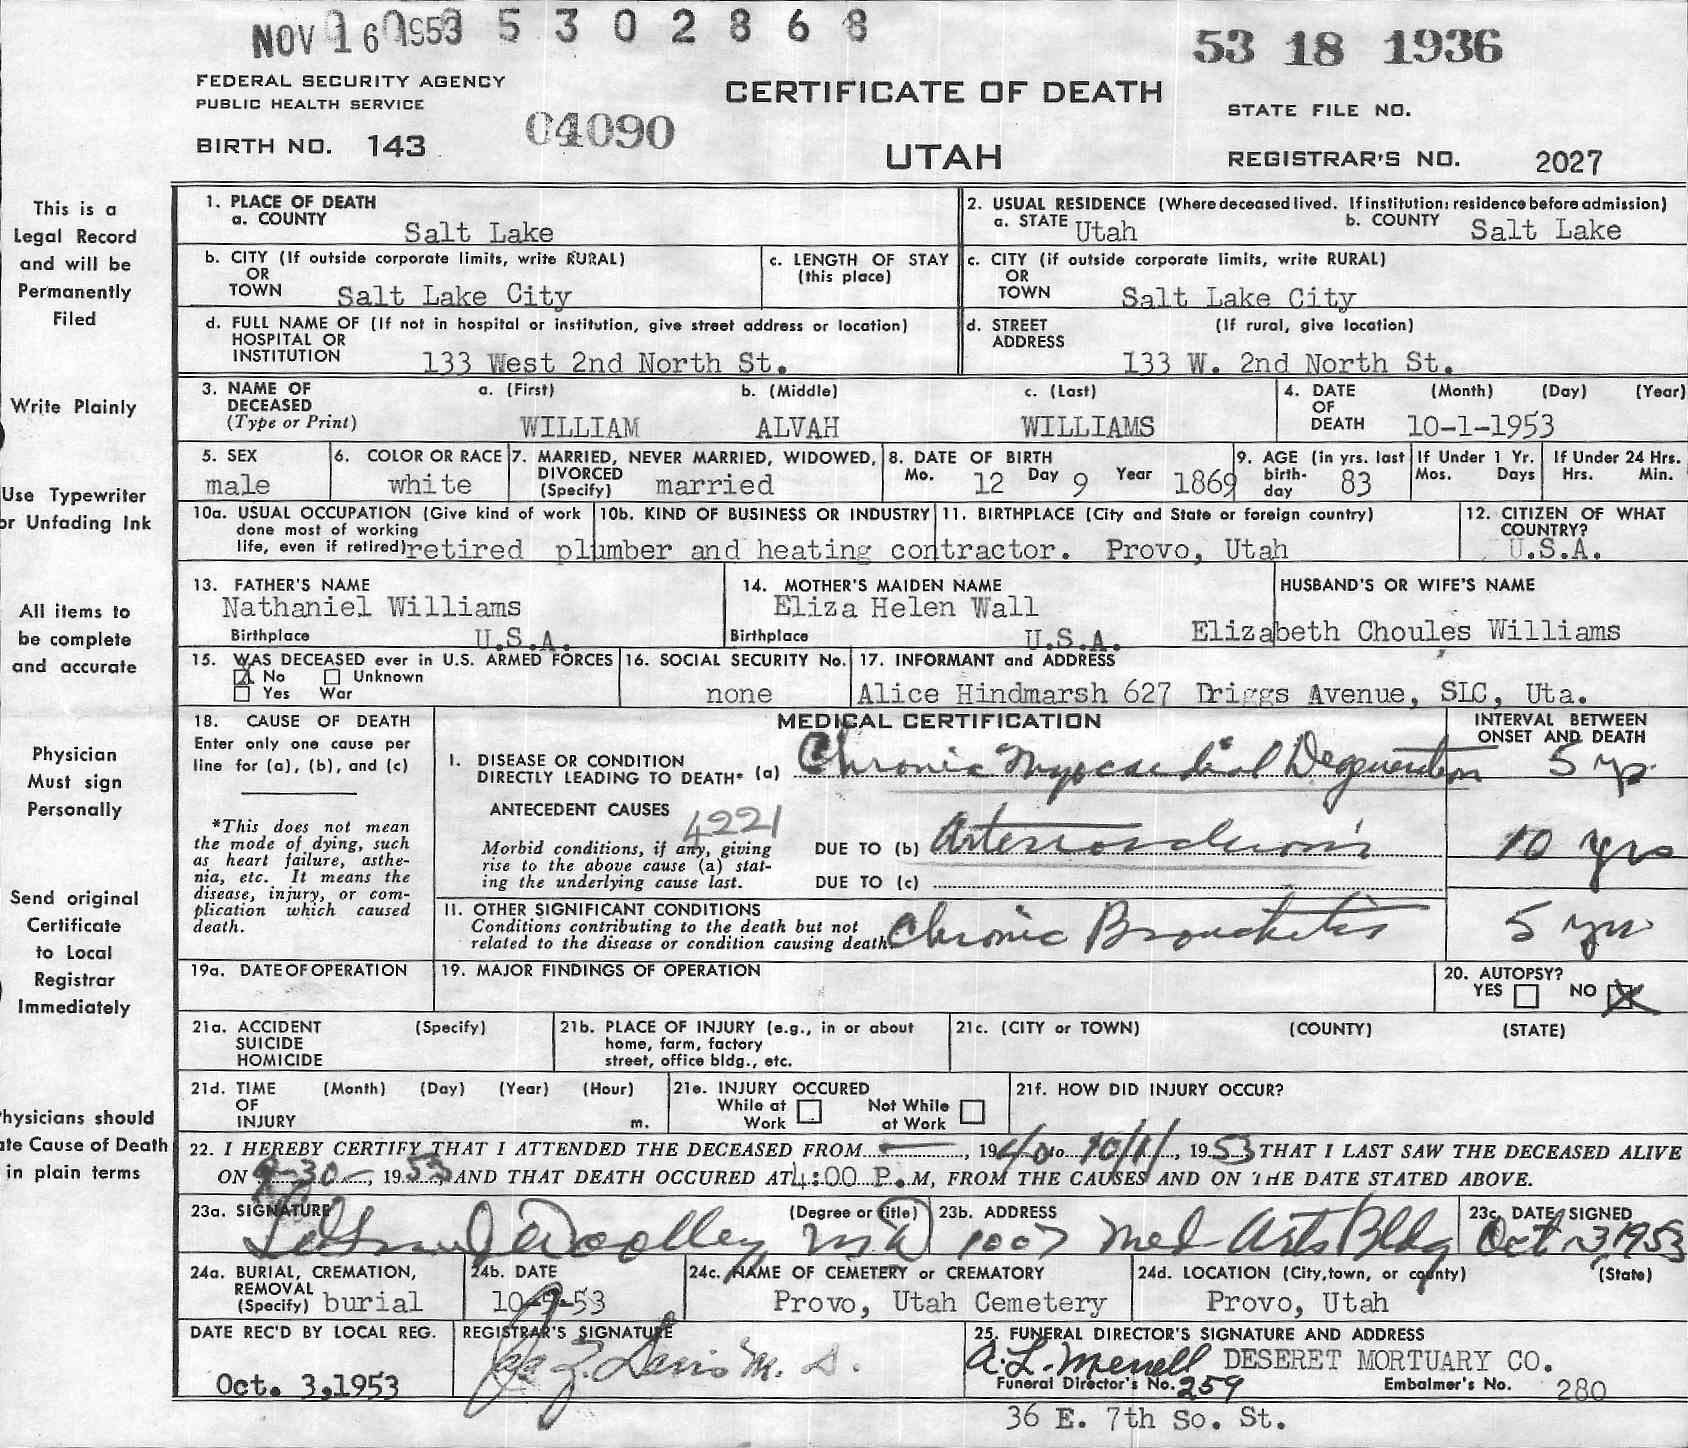 NOV 16 1953 5 3 0 2 8 6 8
53 18 1936
FEDERAL SECURITY AGENCY
PUBLIC HEALTH SERVICE
CERTIFICATE OF DEATH
STATE FILE NO.
BIRTH NO. 143
04090
UTAH
REGISTRAR'S NO. 2027
This is a
Legal Record
and will be
Permanently
Filed
Write Plainly
Use Typewriter
or Unfading Ink
All items to
be complete
and accurate
Physician
Must sign
Personally
Send original
Certificate
to Local
Registrar
Immediately
hysicians should
ate Cause of Death
in plain terms
1. PLACE OF DEATH
a. COUNTY Salt Lake
2. USUAL RESIDENCE (Where deceased lived. If institution: residence before admission)
a. STATE Utah b. COUNTY Salt Lake
b. CITY (If outside corporate limits, write RURAL)
OR
TOWN Salt Lake City
c. LENGTH OF STAY
(this place)
c. CITY (if outside corporate limits, write RURAL)
OR
TOWN Salt Lake City
d. FULL NAME OF (If not in hospital or institution, give street address or location)
HOSPITAL OR
INSTITUTION 133 West 2nd North St.
d. STREET (If rural, give location)
ADDRESS
133 W. 2nd North St.
3. NAME OF a. (First) b. (Middle) c. (Last)
DECEASED
(Type or Print) WILLIAM ALVAH WILLIAMS
4. DATE (Month) (Day) (Year)
OF
DEATH 10-1-1953
5. SEX
male
6. COLOR OR RACE
white
7. MARRIED, NEVER MARRIED, WIDOWED,
DIVORCED
(Specify) married
8. DATE OF BIRTH
Mo. 12 Day 9 Year 1869
9. AGE (in yrs. last
birth-
day 83
If Under 1 Yr.
Mos. Days
If Under 24 Hrs.
Hrs. Min.
10a. USUAL OCCUPATION (Give kind of work
done most of working
life, even if retired) retired plumber and heating contractor.
10b. KIND OF BUSINESS OR INDUSTRY
11. BIRTHPLACE (City and State or foreign country)
Provo, Utah
12. CITIZEN OF WHAT
COUNTRY?
U.S.A.
13. FATHER'S NAME
Nathaniel Williams
Birthplace U.S.A.
14. MOTHER'S MAIDEN NAME
Eliza Helen Wall
Birthplace U.S.A.
HUSBAND'S OR WIFE'S NAME
Elizabeth Choules Williams
15. WAS DECEASED ever in U.S. ARMED FORCES
No Unknown
Yes War
16. SOCIAL SECURITY No.
none
17. INFORMANT and ADDRESS
Alice Hindmarsh 627 Driggs Avenue, SLC, Uta.
18. CAUSE OF DEATH
Enter only one cause per
line for (a), (b), and (c)
*This does not mean
the mode of dying, such
as heart failure, asthe-
nia, etc. It means the
disease, injury, or com-
plication which caused
death.
MEDICAL CERTIFICATION
INTERVAL BETWEEN
ONSET AND DEATH
I. DISEASE OR CONDITION
DIRECTLY LEADING TO DEATH* (a) Chronic Myocardial Degeneration 5 yr.
ANTECEDENT CAUSES
4221
Morbid conditions, if any, giving
rise to the above cause (a) stat-
ing the underlying cause last.
DUE TO (b) Arteriosclerosis 10 yrs
DUE TO (c)
II. OTHER SIGNIFICANT CONDITIONS
Conditions contributing to the death but not
related to the disease or condition causing death. Chronic Bronchitis 5 yrs
19a. DATE OF OPERATION
19. MAJOR FINDINGS OF OPERATION
20. AUTOPSY?
YES NO X
21a. ACCIDENT (Specify)
SUICIDE
HOMICIDE
21b. PLACE OF INJURY (e.g., in or about
home, farm, factory
street, office bldg., etc.
21c. (CITY or TOWN) (COUNTY) (STATE)
21d. TIME (Month) (Day) (Year) (Hour)
OF
INJURY m.
21e. INJURY OCCURED
While at Not While
Work at Work
21f. HOW DID INJURY OCCUR?
22. I HEREBY CERTIFY THAT I ATTENDED THE DECEASED FROM , 1940 to 10/1/, 1953 THAT I LAST SAW THE DECEASED ALIVE
ON 9-30-, 1953, AND THAT DEATH OCCURED AT 4:00 P.M, FROM THE CAUSES AND ON THE DATE STATED ABOVE.
23a. SIGNATURE (Degree or title)
Woolley MD
23b. ADDRESS
1007 Med Arts Bldg
23c. DATE SIGNED
Oct 3 1953
24a. BURIAL, CREMATION,
REMOVAL
(Specify) burial
24b. DATE
10-5-53
24c. NAME OF CEMETERY or CREMATORY
Provo, Utah Cemetery
24d. LOCATION (City, town, or county) (State)
Provo, Utah
DATE REC'D BY LOCAL REG.
Oct. 3, 1953
REGISTRAR'S SIGNATURE
Davis M. D.
25. FUNERAL DIRECTOR'S SIGNATURE AND ADDRESS
A. L. Merrell DESERET MORTUARY CO.
Funeral Director's No. 259 Embalmer's No. 280
36 E. 7th So. St.